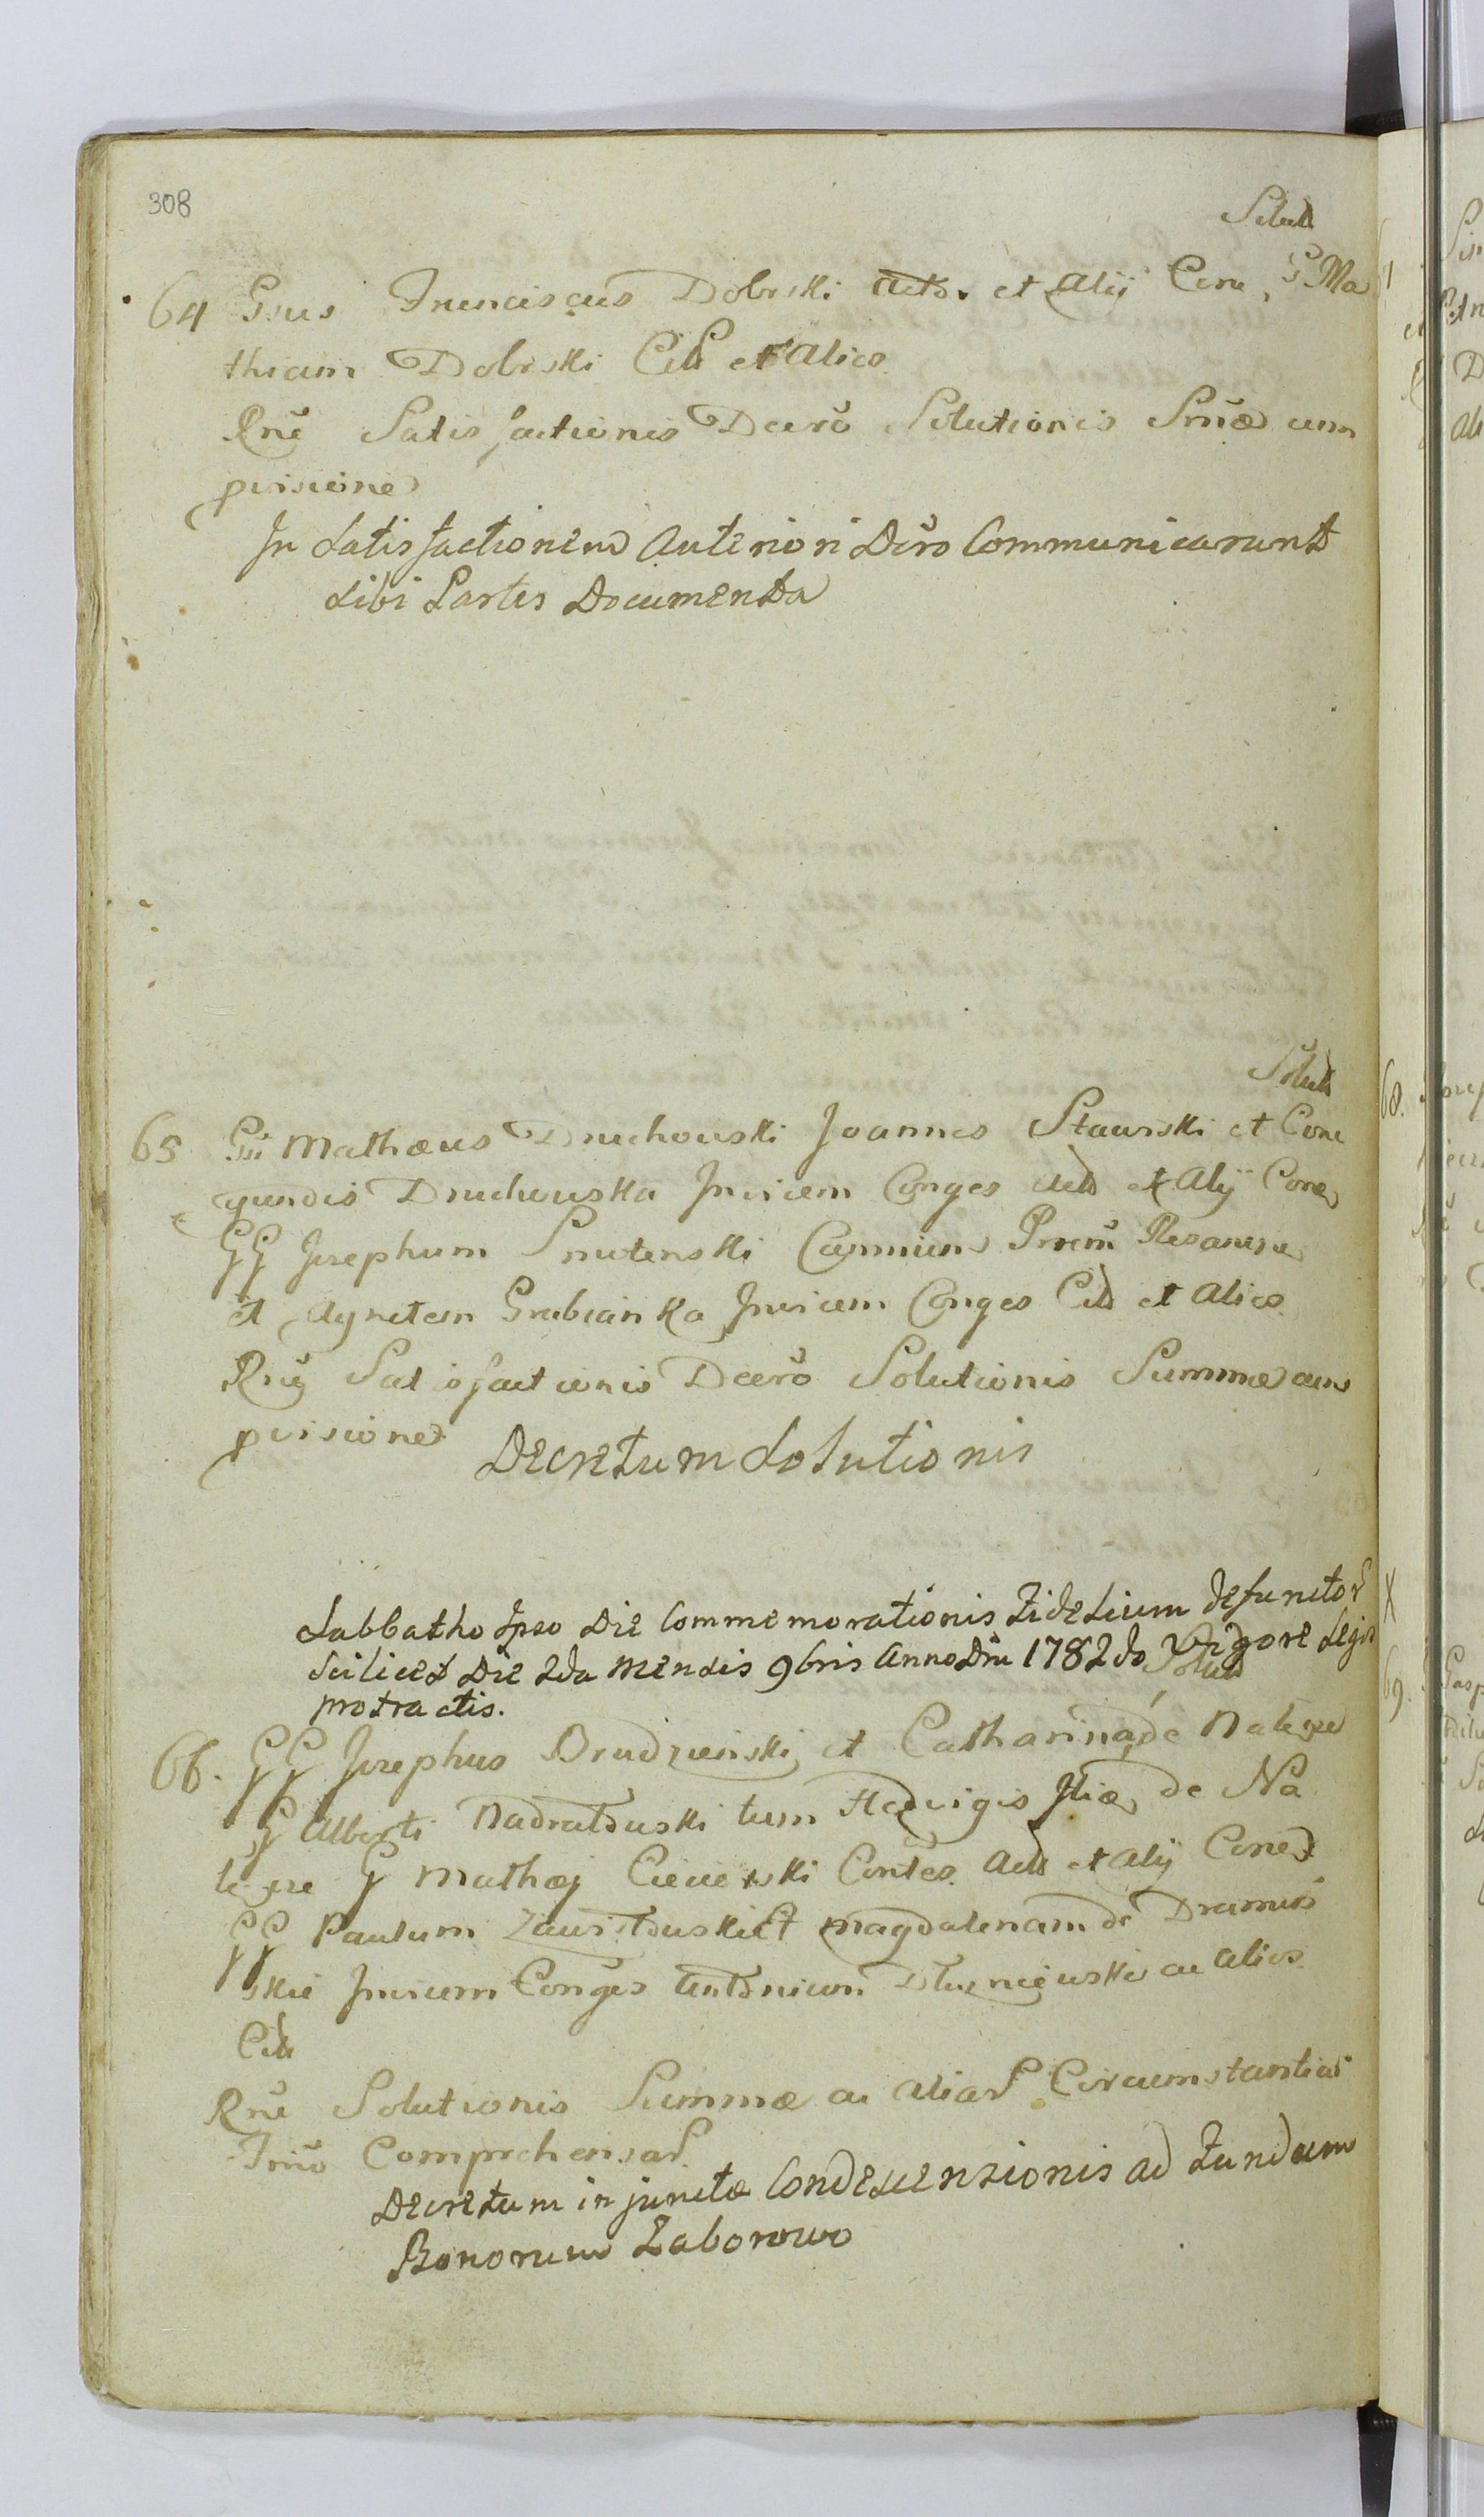 308
Solut
64 Gsus Franciscus Dobrski Act. et Alij Cona G Ma
thiam Dobrski Citt et Alios
Rne Satisfactionis Decro Solutionis Smæ cum
pvisione
In Satisfactionem Anteriori Dcro Communicarunt
Sibi Partes Documenta
Solut
65 Gsi Mathæus Druchowski Joannes Stawski et Cone
gundis Druchowska Invicem Conges Act et Alij Cona
GG Josephum Smolenski Camium Præm Rozanen
et Agnetem Grabianka Invicem Conges Citt et Alios
Rne Satisfactionis Decro Solutionis Summæ cum
pvisione
Decretum Solutionis
Sabbatho Ipso Die Commemorationis Fidelium Defunctor
Scilicet Die 2da Mensis 9bris Anno Dni 1782do Vigore Legis
protractis.
Solut
66. GG Josephus Brudzienski et Catharina de Natęze
G Alberti Nadratowski tum Hedvigis Flia de Na
tęze G Mathæj Ciciewski Contes Act et Alij Cona
GG Paulum Zawistowski et Magdalenam de Dramis
skie Invicem Conges Antonium Dłuzniewski ac Alios
Citt
Rne Solutionis Summæ ac Aliar Circumstantiar
Tmo Comprehensar
Decretum injunctæ Condescensionis ad Fundum
Bonorum Zaborowo